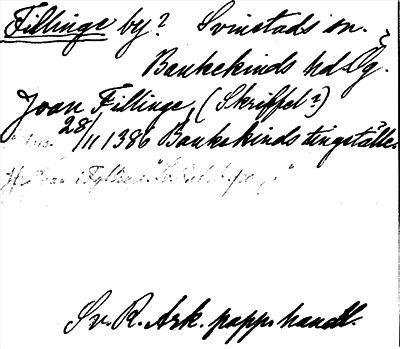 Fillinge by? Svinstads sn.
Bankekinds hd Ög.
Joan Fillinge, (Skriffel?)
28/11 1386 Bankekinds tingställe
Sv. R. Ark. papp. handl.